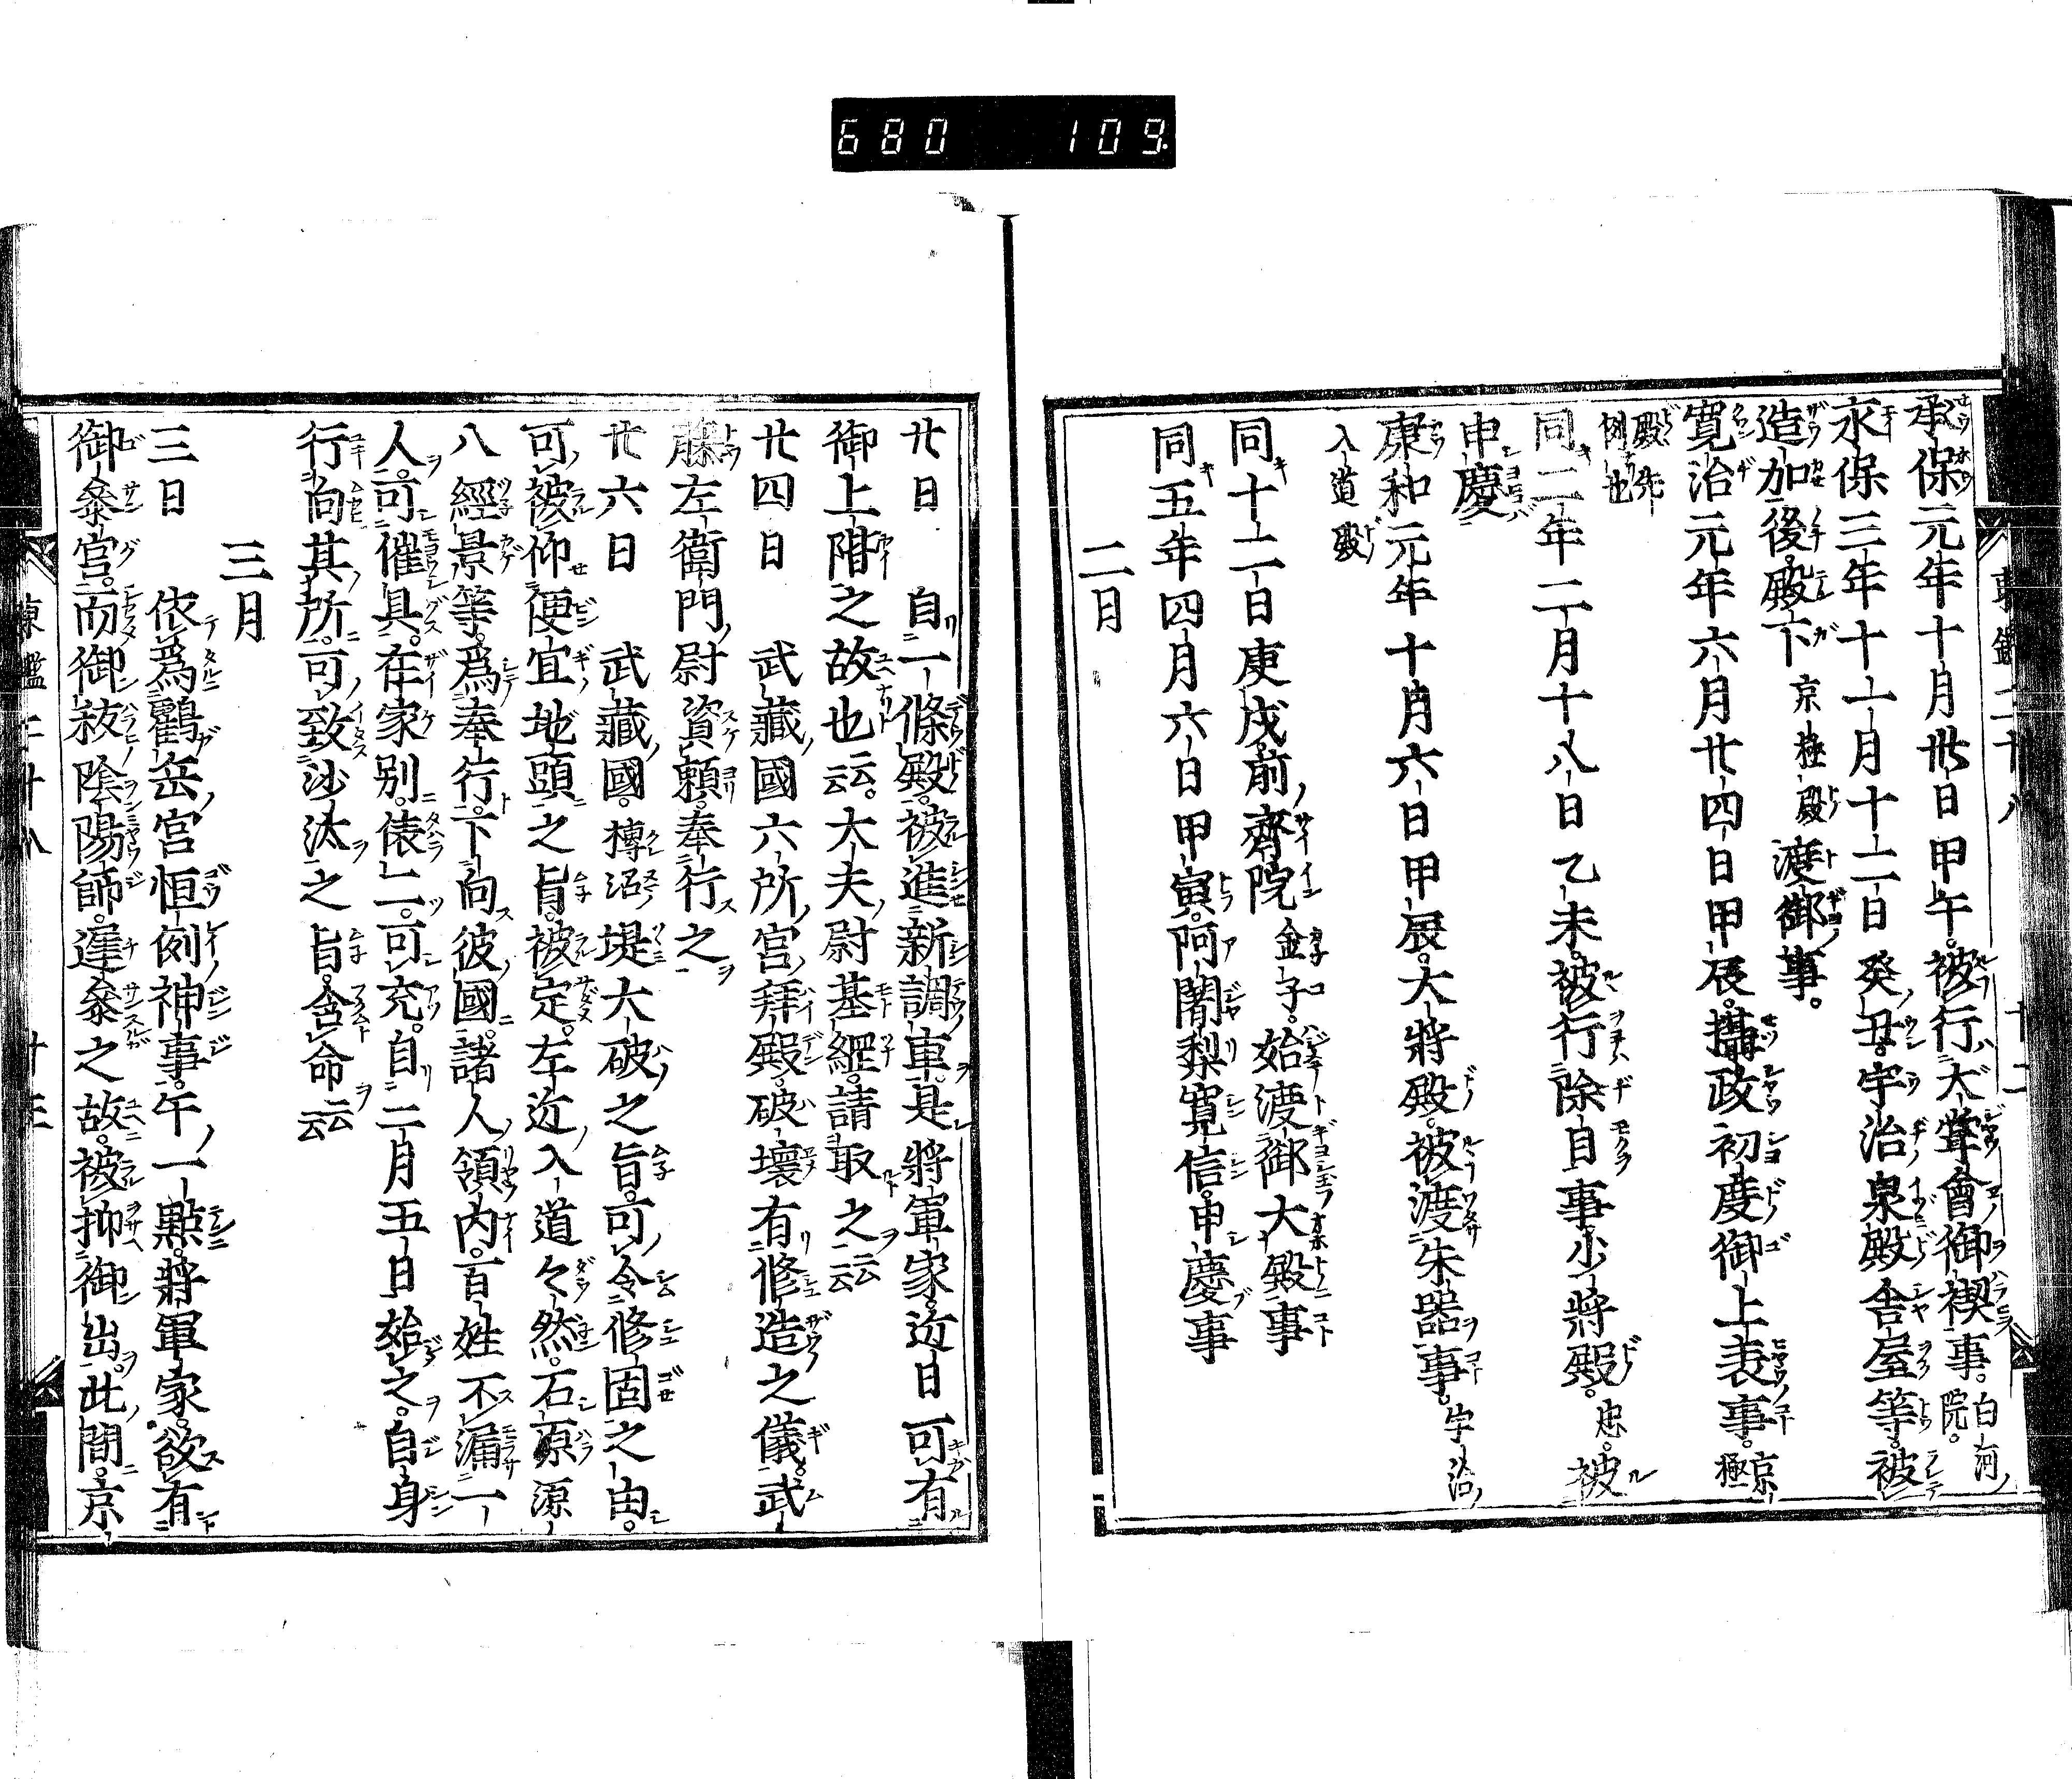 680 109
承保元年十月卅日甲午。被行大甞會御禊事。白河院。
永保三年十一月十二日癸丑。宇治泉殿舎屋等。被
造加。後殿下京極殿渡御事。
寛治元年六月廿四日甲辰。攝政初度御上表事。京極
殿先例也
同二年二月十八日乙未。被行除自事少將殿。忠。被
申慶
康和元年十月六日甲辰。大將殿。被渡朱器事。宇治
入道殿
同十二日庚戌前齋院金子。始渡御大殿事
同五年四月六日甲寅。阿闍梨寛信。申慶事
二月
廿日 自一條殿。被進新調車。是將軍家。近日可有
御上階之故也云云。大夫尉基經。請取之云云
廿四日 武藏國六所宮拜殿。破壞有修造之儀。武
藤左衛門尉資頼。奉行之
廿六日 武藏國。榑沼堤大破之旨。可令修固之由。
可被仰便宜地頭之旨。被定。左近入道々然。石原源
八經景等。爲奉行。下向彼國。諸人領内。百姓不漏一
人。可催具。在家別。俵二。可充。自二月五日始之。自身
行向其所。可致沙汰之旨。含命云云
三月
三日 依爲鶴岳宮恒例神事。午一點。將軍家。欲有
御參宮。而御秡陰陽師。遲參之故。被抑御出。此間。京